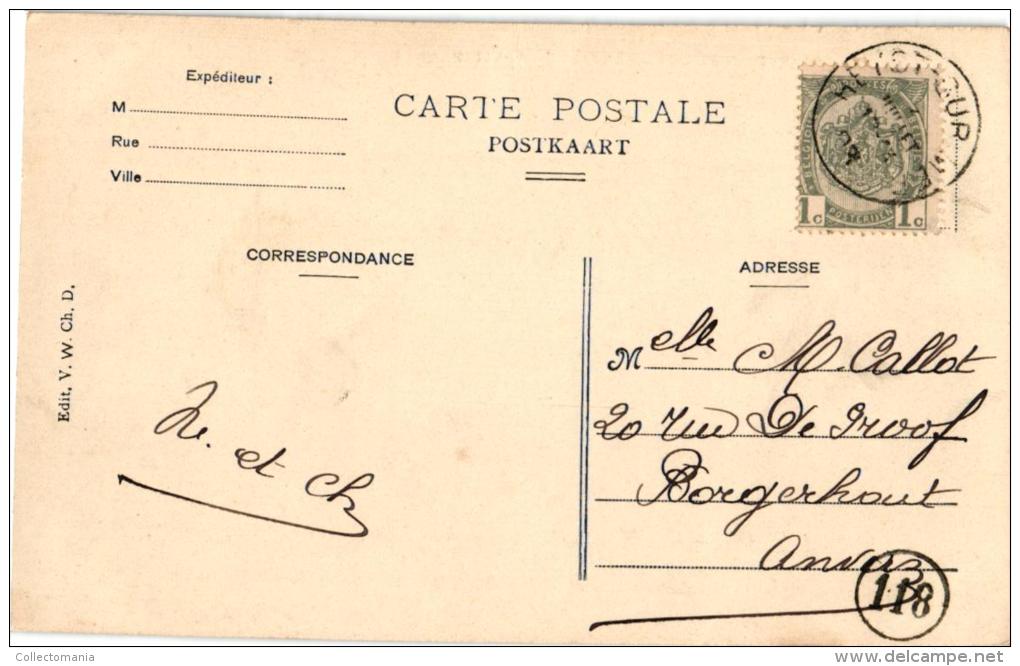 Expéditeur :
M
Rue
Ville
CARTE POSTALE
POSTKAART
1c 1c
POSTERIJEN
CORRESPONDANCE
ADRESSE
Edit. V. W. Ch. D.
et Ch
Melle M. Callot
20 rue De Groof
Borgerhout
Anvers
118
Collectomania
delcampe.net